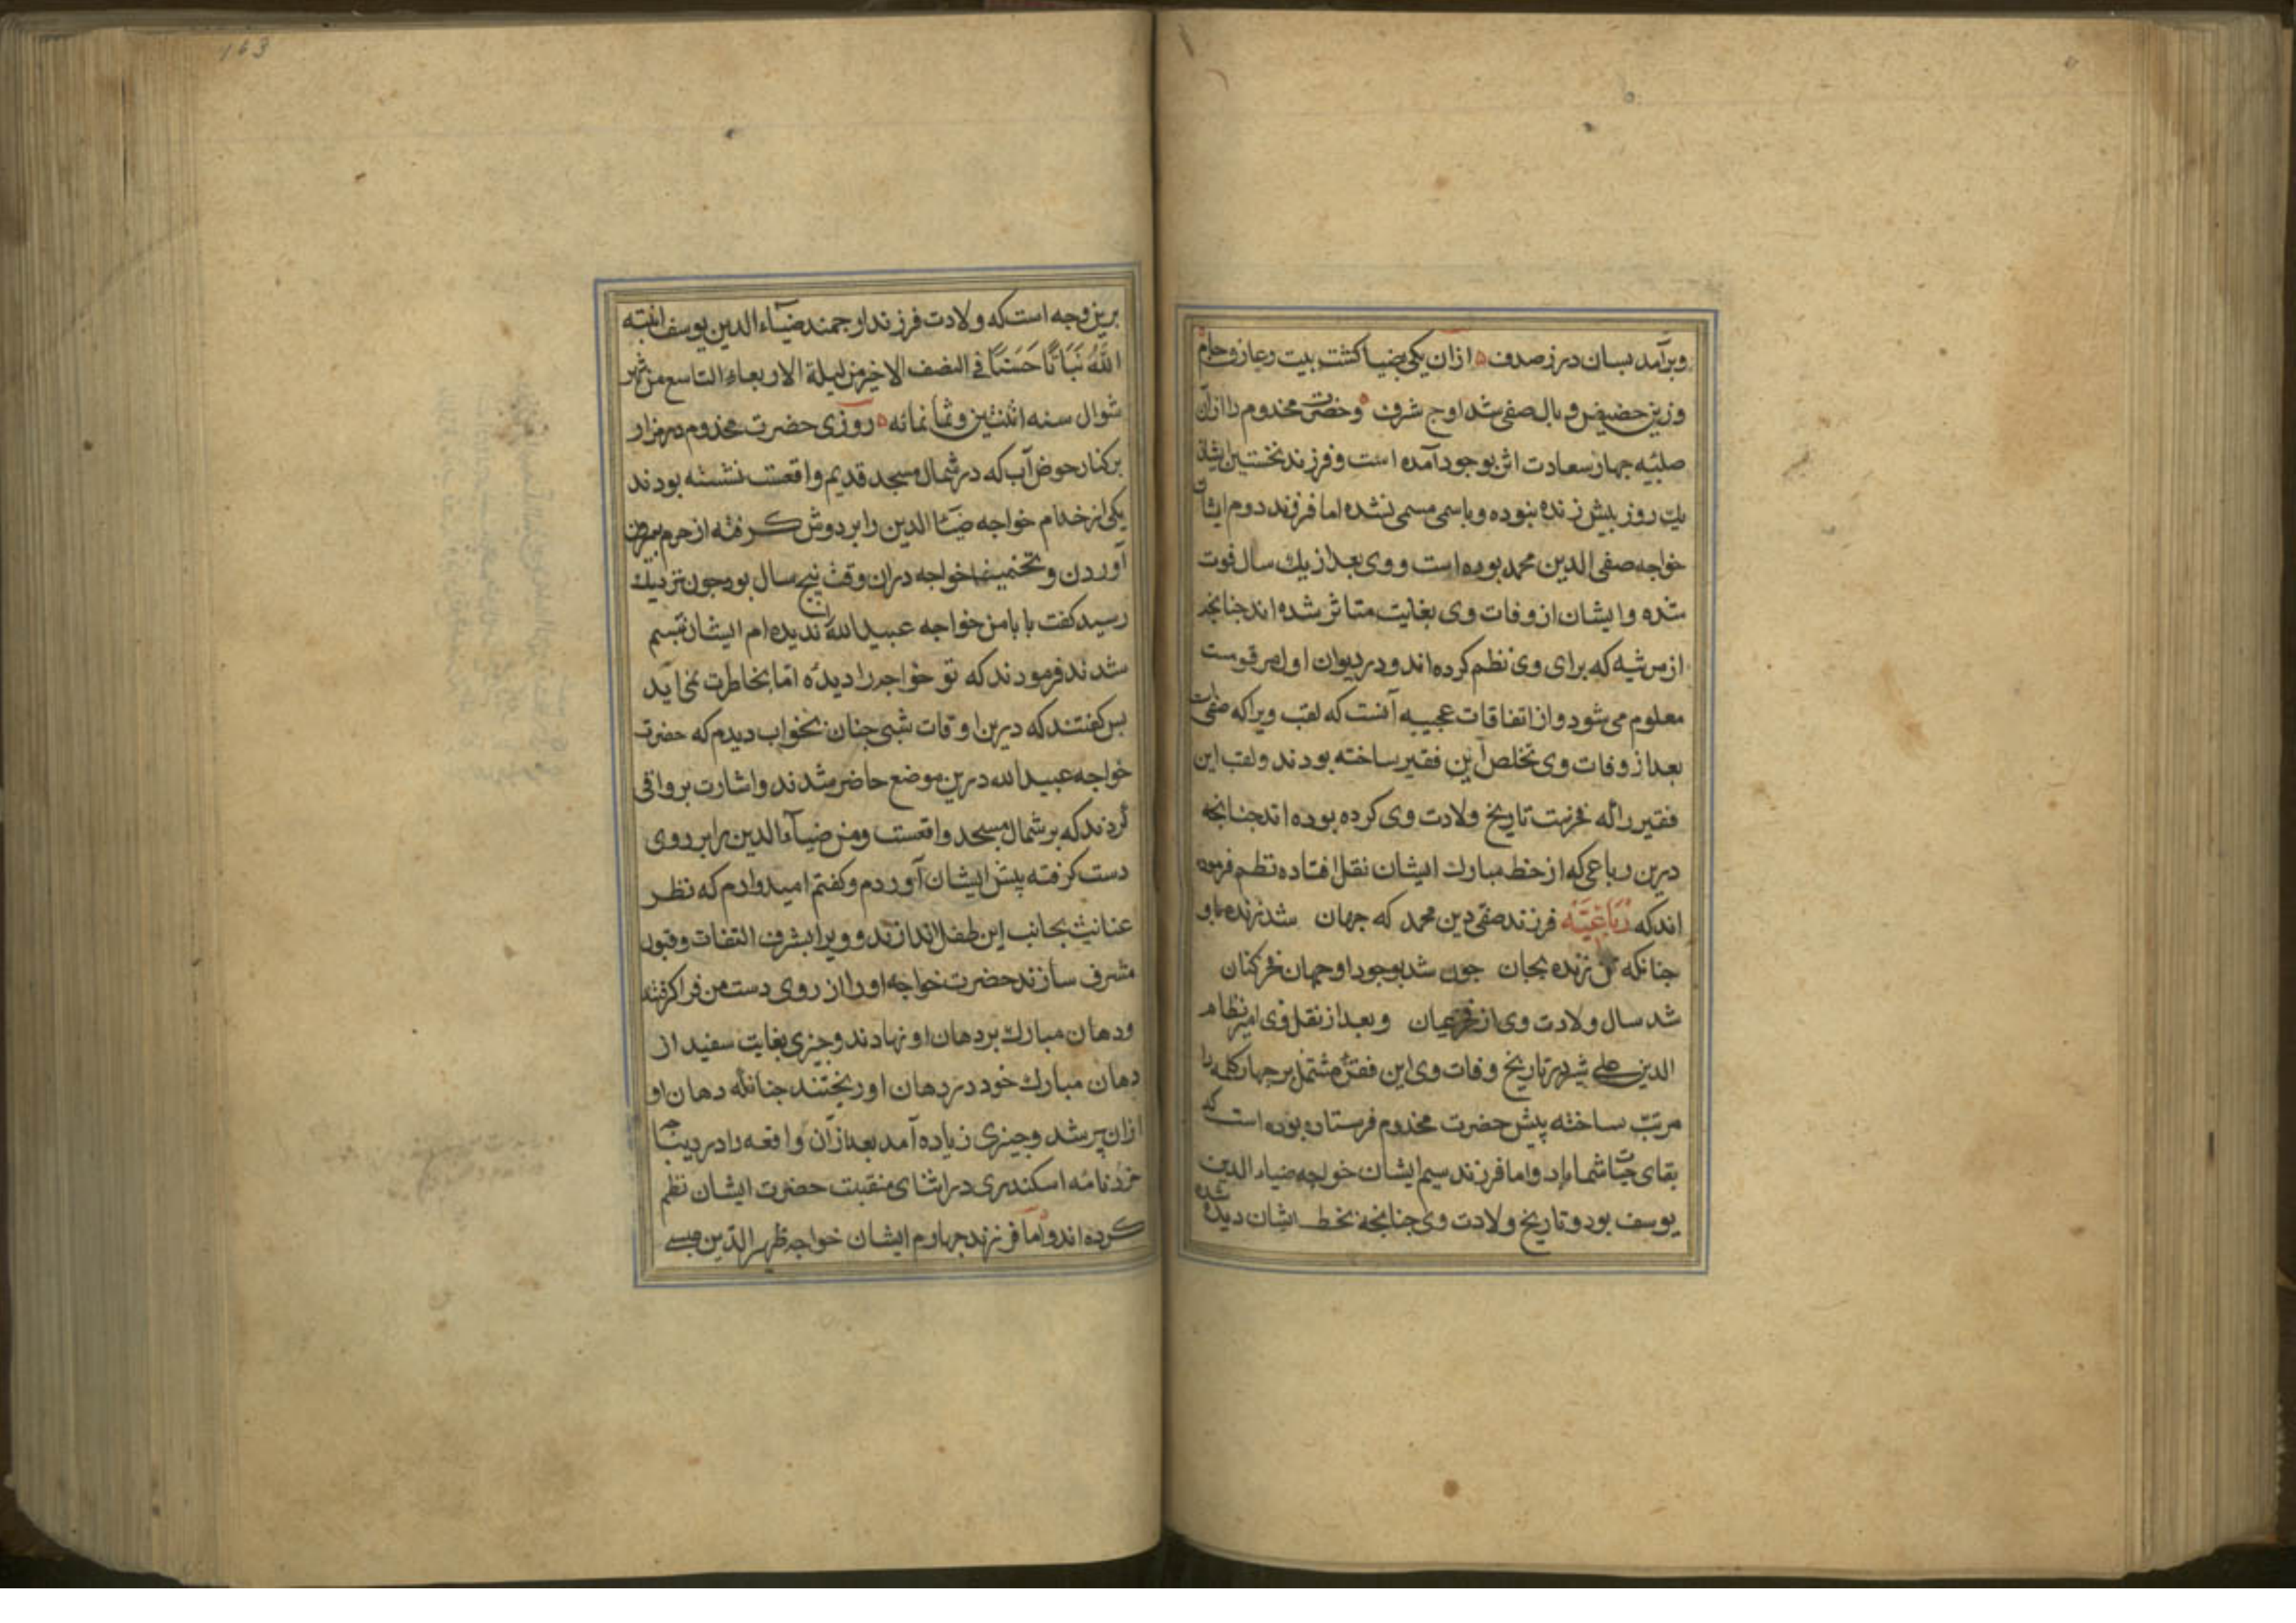 وبرآمد بسان در ز صدف ازان یکی ضیا کشت بیت وعاز و حازم
وزین حضیض وبال صفی شد اوج شرف وحضرت مخدوم را ازان
صلبیه چهار سعادت اثر بوجود آمده است و فرزند نخستین ایشان
یک روز بیش زنده نبوده وباسمی مسمی نشده اما فرزند دوم ایشان
خواجه صفی الدین محمد بوده است و وی بعد از یک سال فوت
شده وایشان از وفات وی بغایت متاثر شده اند جنانجه
از مرثیه که برای وی نظم کرده اند ودر دیوان اول مرقومست
معلوم می شود واز اتفاقات عجیبه آنست که لقب ویرا که صفیست
بعد از وفات وی تخلص این فقیر ساخته بودند ولقب این
فقیر را که فخرست تاریخ ولادت وی کرده بوده اند جنانجه
درین رباعی که از خط مبارک ایشان نقل افتاده نظم فرموده
اند که رباعیّه فرزند صفی دین محمد که جهان شد زنده باو
جنانکه تن زنده بجان جون شد بوجود او جهان فخر کنان
شد سال ولادت وی از فخر عیان وبعد از نقل وی امیر نظام
الدین علی شیر در تاریخ وفات وی این فقره مشتمل بر جهار کلمه را
مرتب ساخته پیش حضرت مخدوم فرستاده بوده است که
بقای حیات شما باد واما فرزند سیم ایشان خواجه ضیاء الدین
یوسف بود وتاریخ ولادت وی جنانجه بخط ایشان دیده شده
برین وجه است که ولادت فرزند ارجمند ضیاء الدین یوسف انبته
اللّٰهُ نَبَاتًا حَسَنًا فی النصف الاخیر من لیلة الاربعاء التاسع من شهر
شوال سنه اثنتین وثمانمائه روزی حضرت مخدوم در مزار
بر کنار حوض آب که در شمال مسجد قدیم واقعست نشسته بودند
یکی از خدام خواجه ضیا الدین را بر دوش کرفته از حرم بیرون
آوردن وتخمینا خواجه دران وقت پنج سال بود جون نزدیک
رسید کفت بابا من خواجه عبید الله را ندیده ام ایشان تبسم
شدند فرمودند که تو خواجه را دیدهٔ اما بخاطرت نمی آید
بس کفتند که درین اوقات شبی جنان بخواب دیدم که حضرت
خواجه عبید الله درین موضع حاضر شدند واشارت بر واقی
کردند که بر شمال مسجد واقعست ومن ضیآء الدین را بر روی
دست کرفته پیش ایشان آوردم وکفتم امیدوارم که نظر
عنایت بجانب این طفل اندازند وویرا بشرف التفات وقبول
مشرف سازند حضرت خواجه اورا از روی دست من فرا کرفته
ودهان مبارک بر دهان او نهادند وجیزی بغایت سفید از
دهان مبارک خود در دهان او ریختند جنانکه دهان او
ازان پر شد وجیزی زیاده آمد بعد ازان واقعه را در دیباجه
خردنامه اسکندری در اثنای منقبت حضرت ایشان نظم
کرده اند واما فرزند جهارم ایشان خواجه ظهیر الدین عیسی
163